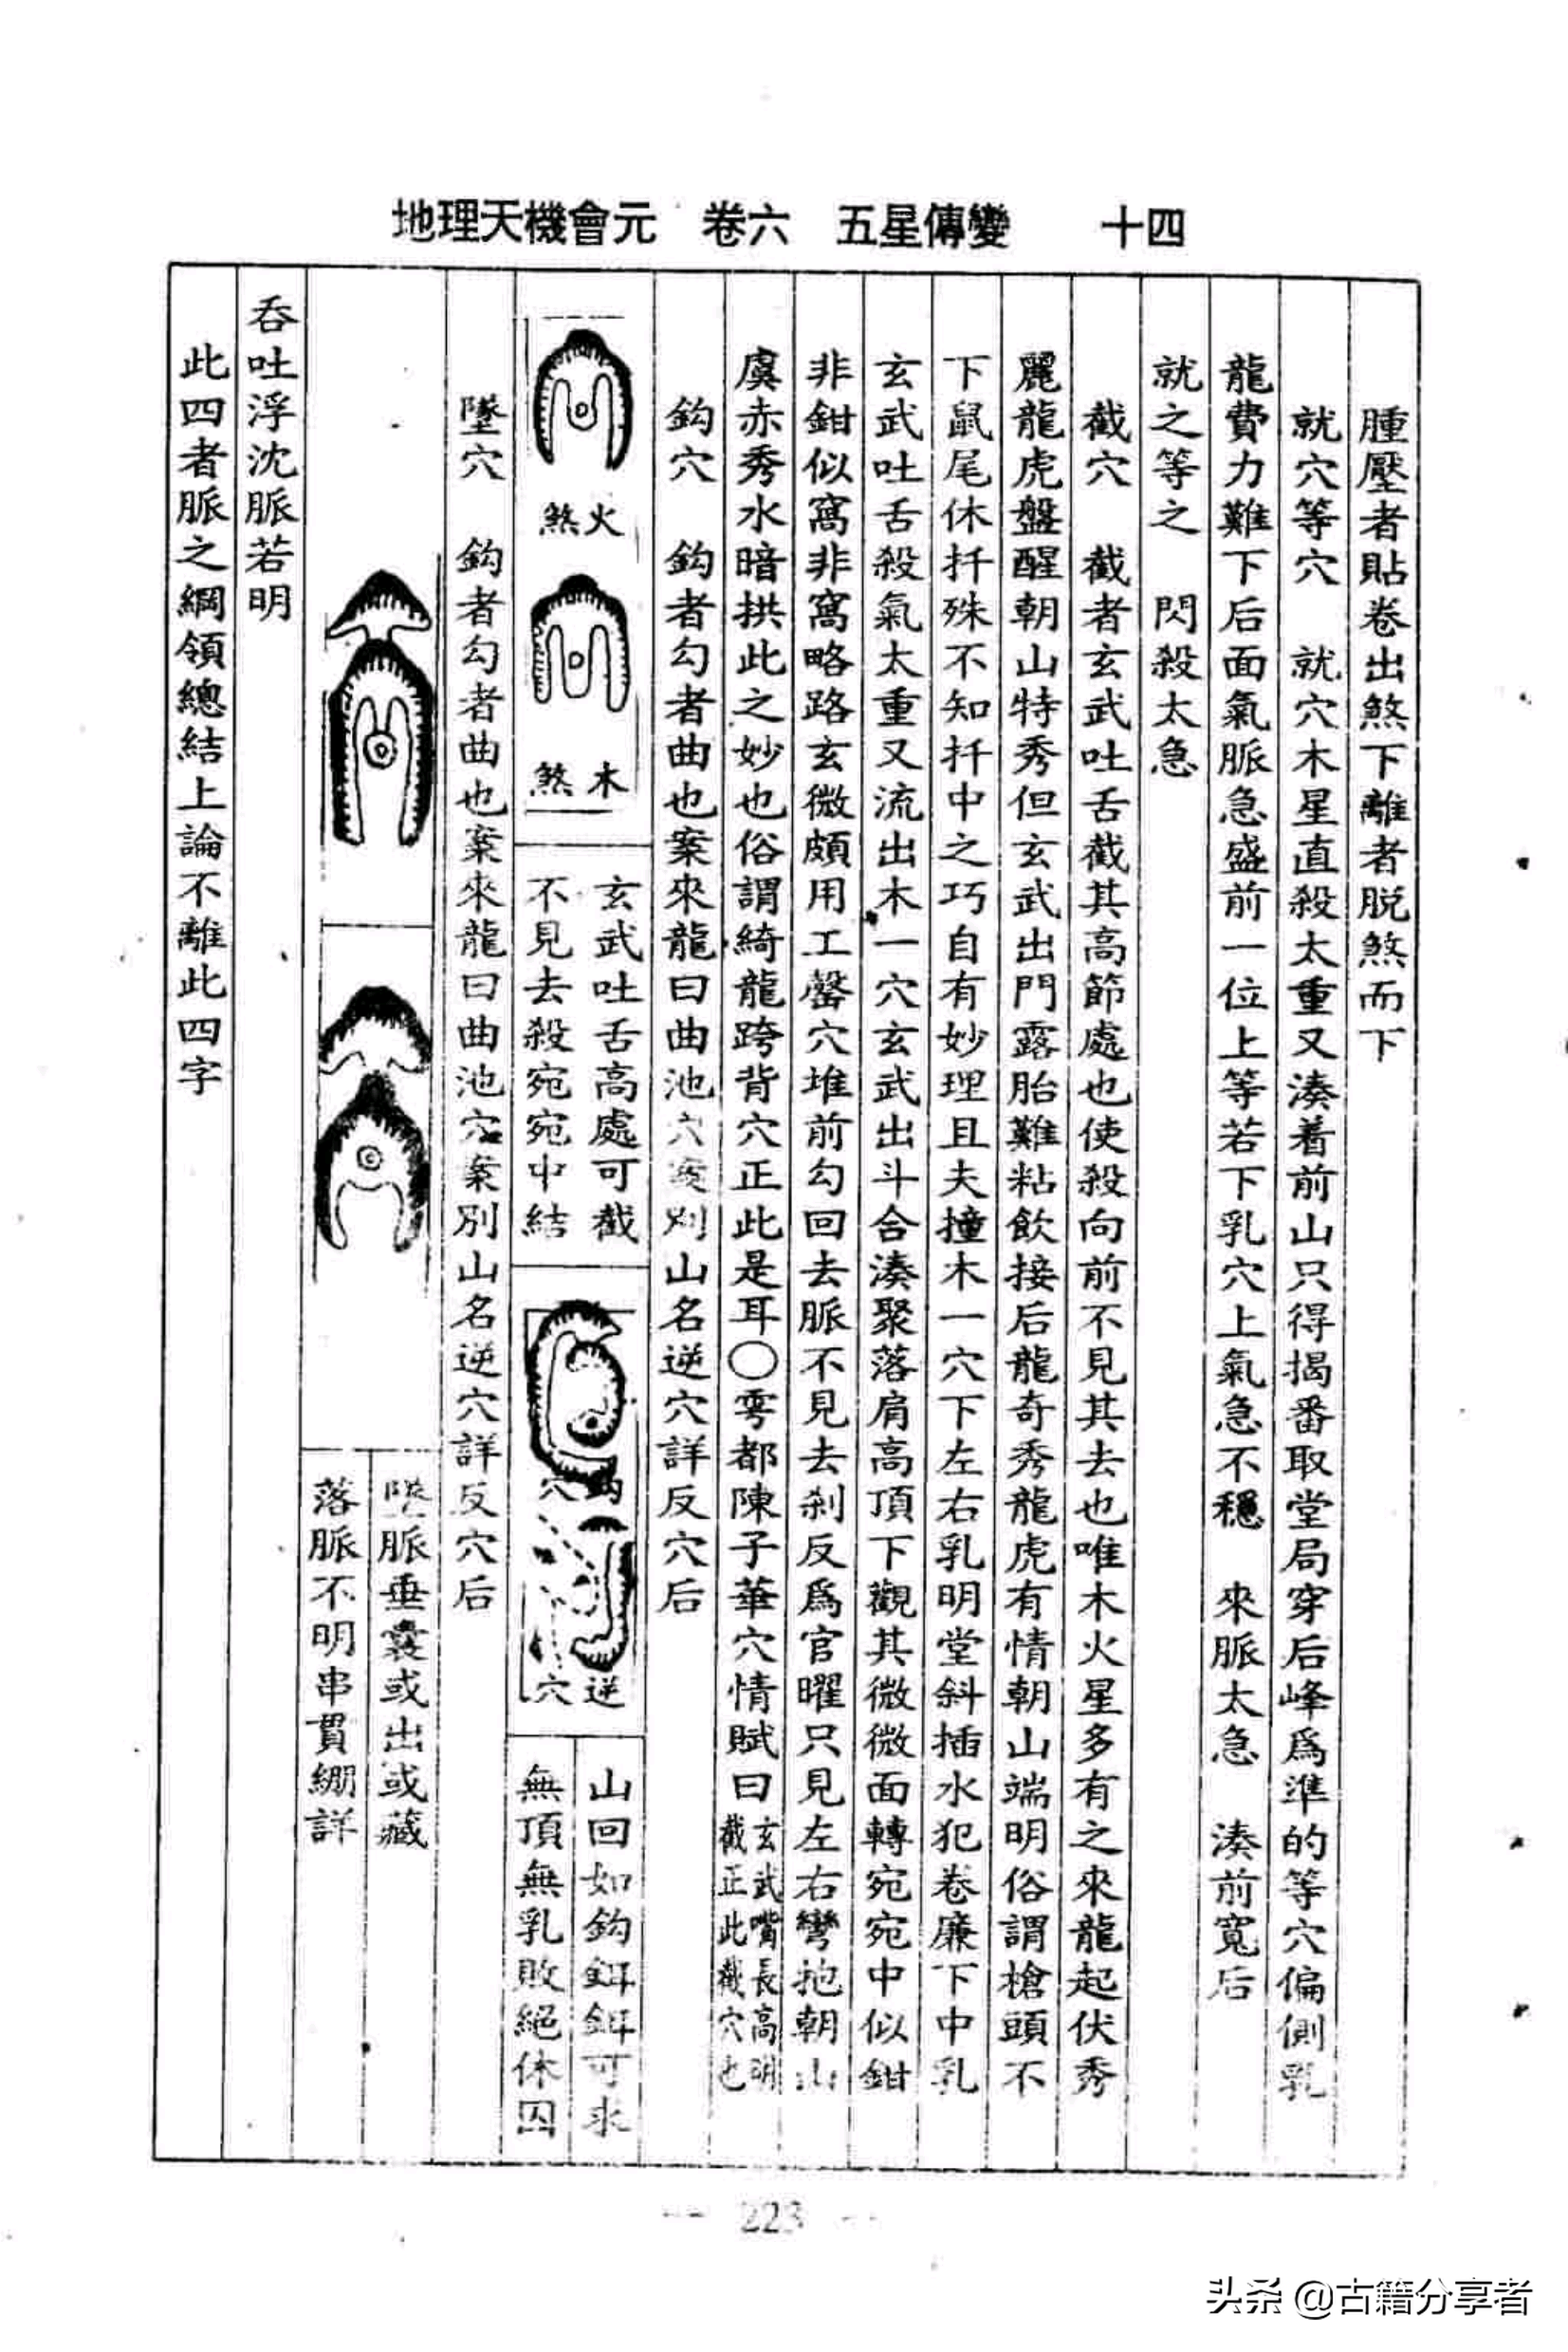 地理天機會元　卷六　五星傳變　十四
腫壓者貼卷出煞下離者脫煞而下
就穴等穴　就穴木星直殺太重又湊着前山只得揭番取堂局穿后峰爲準的等穴偏側乳
龍費力難下后面氣脈急盛前一位上等若下乳穴上氣急不穩　來脈太急　湊前寬后
就之等之　閃殺太急
截穴　截者玄武吐舌截其高節處也使殺向前不見其去也唯木火星多有之來龍起伏秀
麗龍虎盤醒朝山特秀但玄武出門露胎難粘飲接后龍奇秀龍虎有情朝山端明俗謂槍頭不
下鼠尾休扦殊不知扦中之巧自有妙理且夫撞木一穴下左右乳明堂斜插水犯卷廉下中乳
玄武吐舌殺氣太重又流出木一穴玄武出斗合湊聚落肩高頂下觀其微微面轉宛宛中似鉗
非鉗似窩非窩略路玄微頗用工罄穴堆前勾回去脈不見去剎反爲官曜只見左右彎抱朝山
虞赤秀水暗拱此之妙也俗謂綺龍跨背穴正此是耳〇雩都陳子華穴情賦曰玄武嘴長高明
截正此截穴也
鈎穴　鈎者勾者曲也案來龍曰曲池穴案別山名逆穴詳反穴后
火煞
木煞
玄武吐舌高處可截
不見去殺宛宛中結
鈎穴
逆穴
山回如鈎鉺鉺可求
無頂無乳敗絕休囚
墜穴　鈎者勾者曲也案來龍曰曲池穴案別山名逆穴詳反穴后
脈垂囊或出或藏
落脈不明串貫綳詳
吞吐浮沈脈若明
此四者脈之綱領總結上論不離此四字
223
头条 @古籍分享者